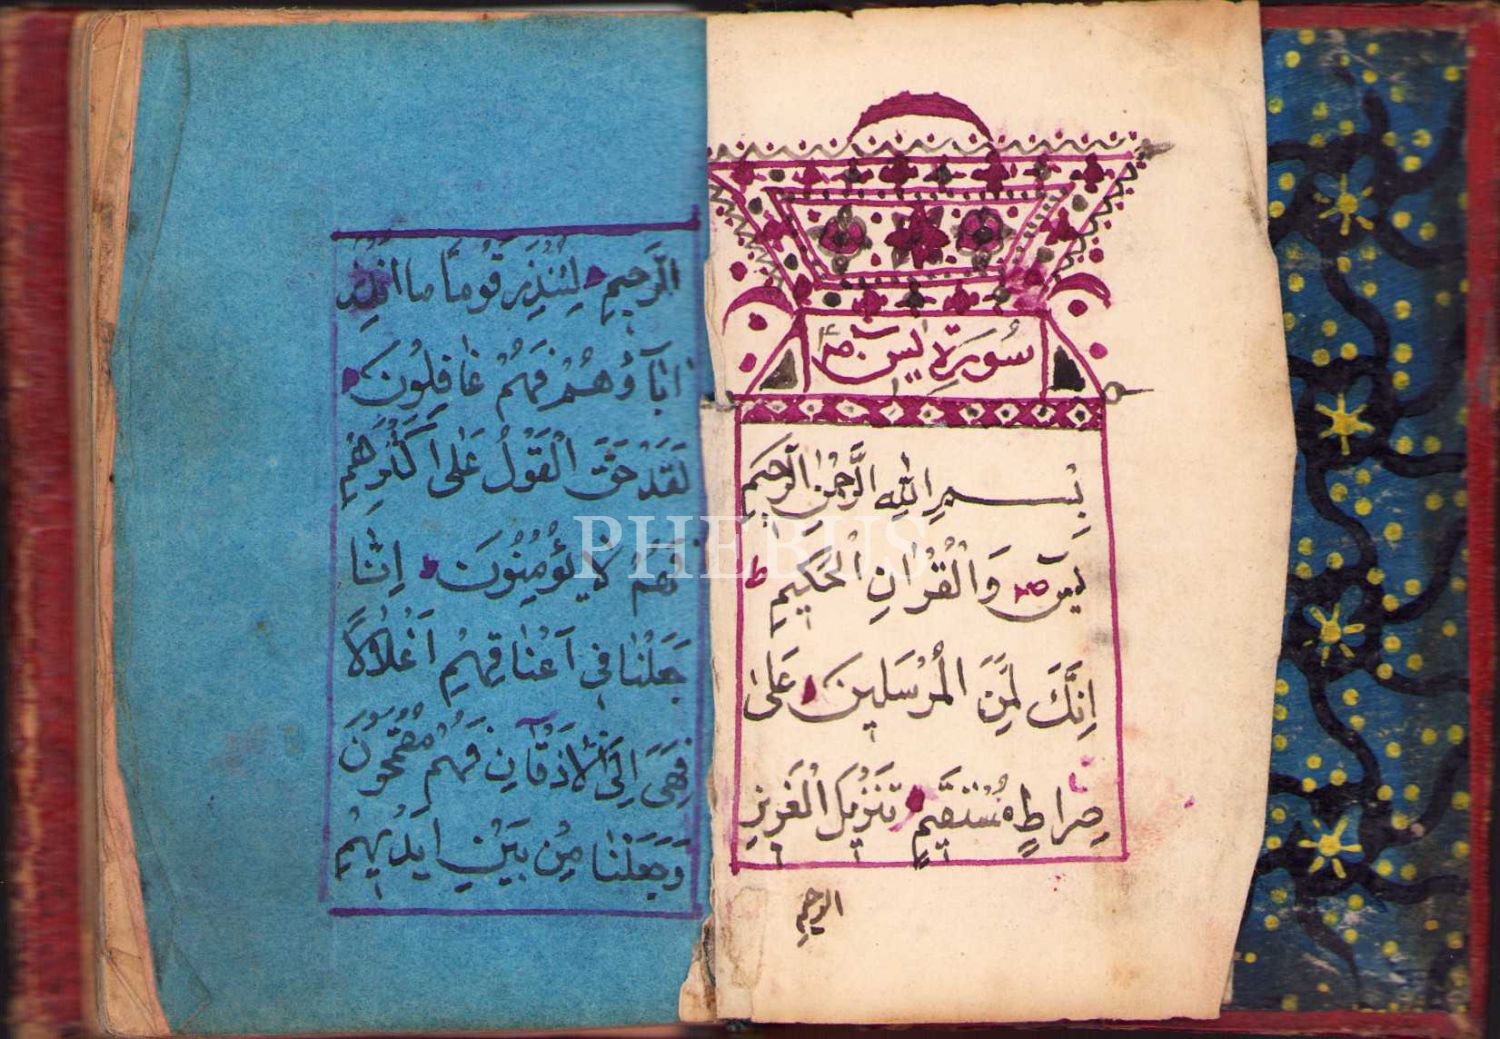 سُورَةِ يٰسٓ
بِسْمِ اللّٰهِ الرَّحْمٰنِ الرَّحِيمِ
يٰسٓ وَالْقُرْاٰنِ الْحَكِيمِ ط
اِنَّكَ لَمِنَ الْمُرْسَلِينَ عَلٰى
صِرَاطٍ مُسْتَقِيمٍ تَنْزِيلَ الْعَزِيزِ
الرحيم
الرَّحِيمِ لِتُنْذِرَ قَوْمًا مَا اُنْذِرَ
اٰبَآؤُهُمْ فَهُمْ غَافِلُونَ
لَقَدْ حَقَّ الْقَوْلُ عَلٰى اَكْثَرِهِمْ
فَهُمْ لَا يُؤْمِنُونَ اِنَّا
جَعَلْنَا فِي اَعْنَاقِهِمْ اَغْلَالًا
فَهِيَ اِلَى الْاَذْقَانِ فَهُمْ مُقْمَحُونَ
وَجَعَلْنَا مِنْ بَيْنِ اَيْدِيهِمْ
PHEBUS